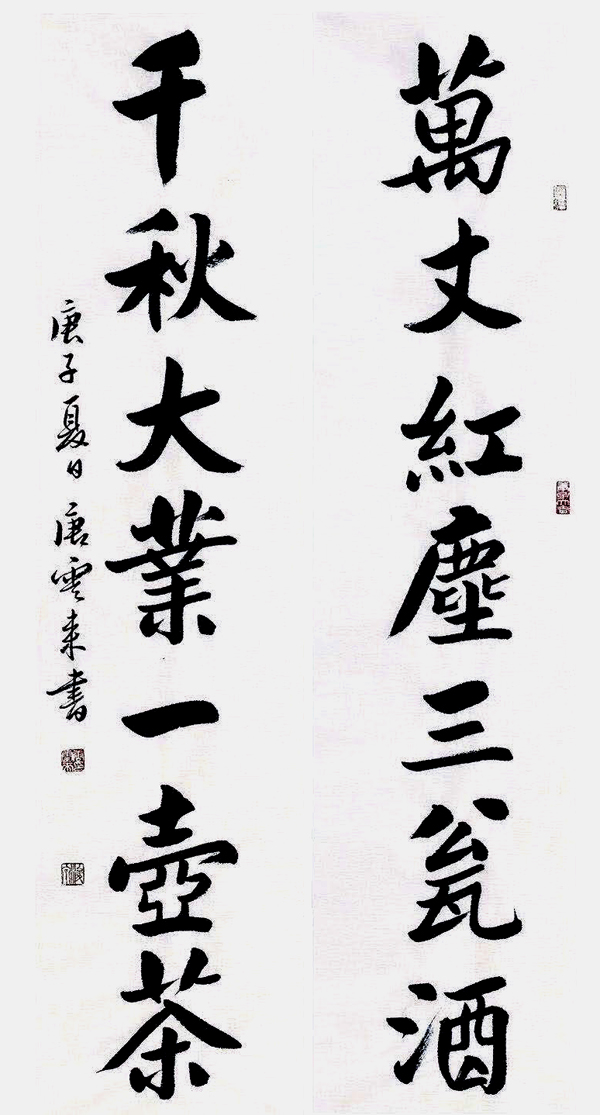 萬丈紅塵三瓮酒
千秋大業一壺茶
庚子夏日唐雲来書